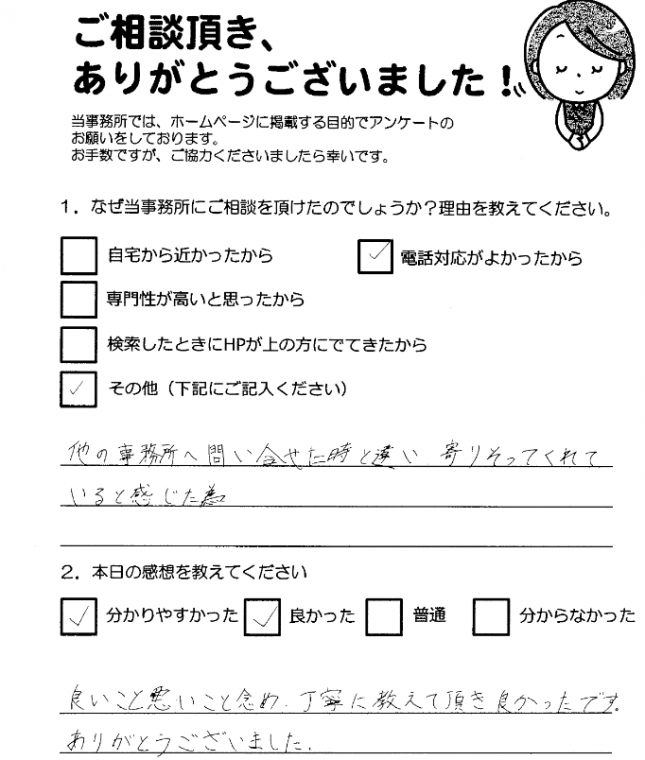 ご相談頂き、
ありがとうございました！
当事務所では、ホームページに掲載する目的でアンケートの
お願いをしております。
お手数ですが、ご協力くださいましたら幸いです。
1．なぜ当事務所にご相談を頂けたのでしょうか？理由を教えてください。
自宅から近かったから 電話対応がよかったから
専門性が高いと思ったから
検索したときにHPが上の方にでてきたから
その他（下記にご記入ください）
他の事務所へ問い合せた時と違い 寄りそってくれて
いると感じた為
2．本日の感想を教えてください
分かりやすかった 良かった 普通 分からなかった
良いこと悪いこと含め、丁寧に教えて頂き良かったです。
ありがとうございました.